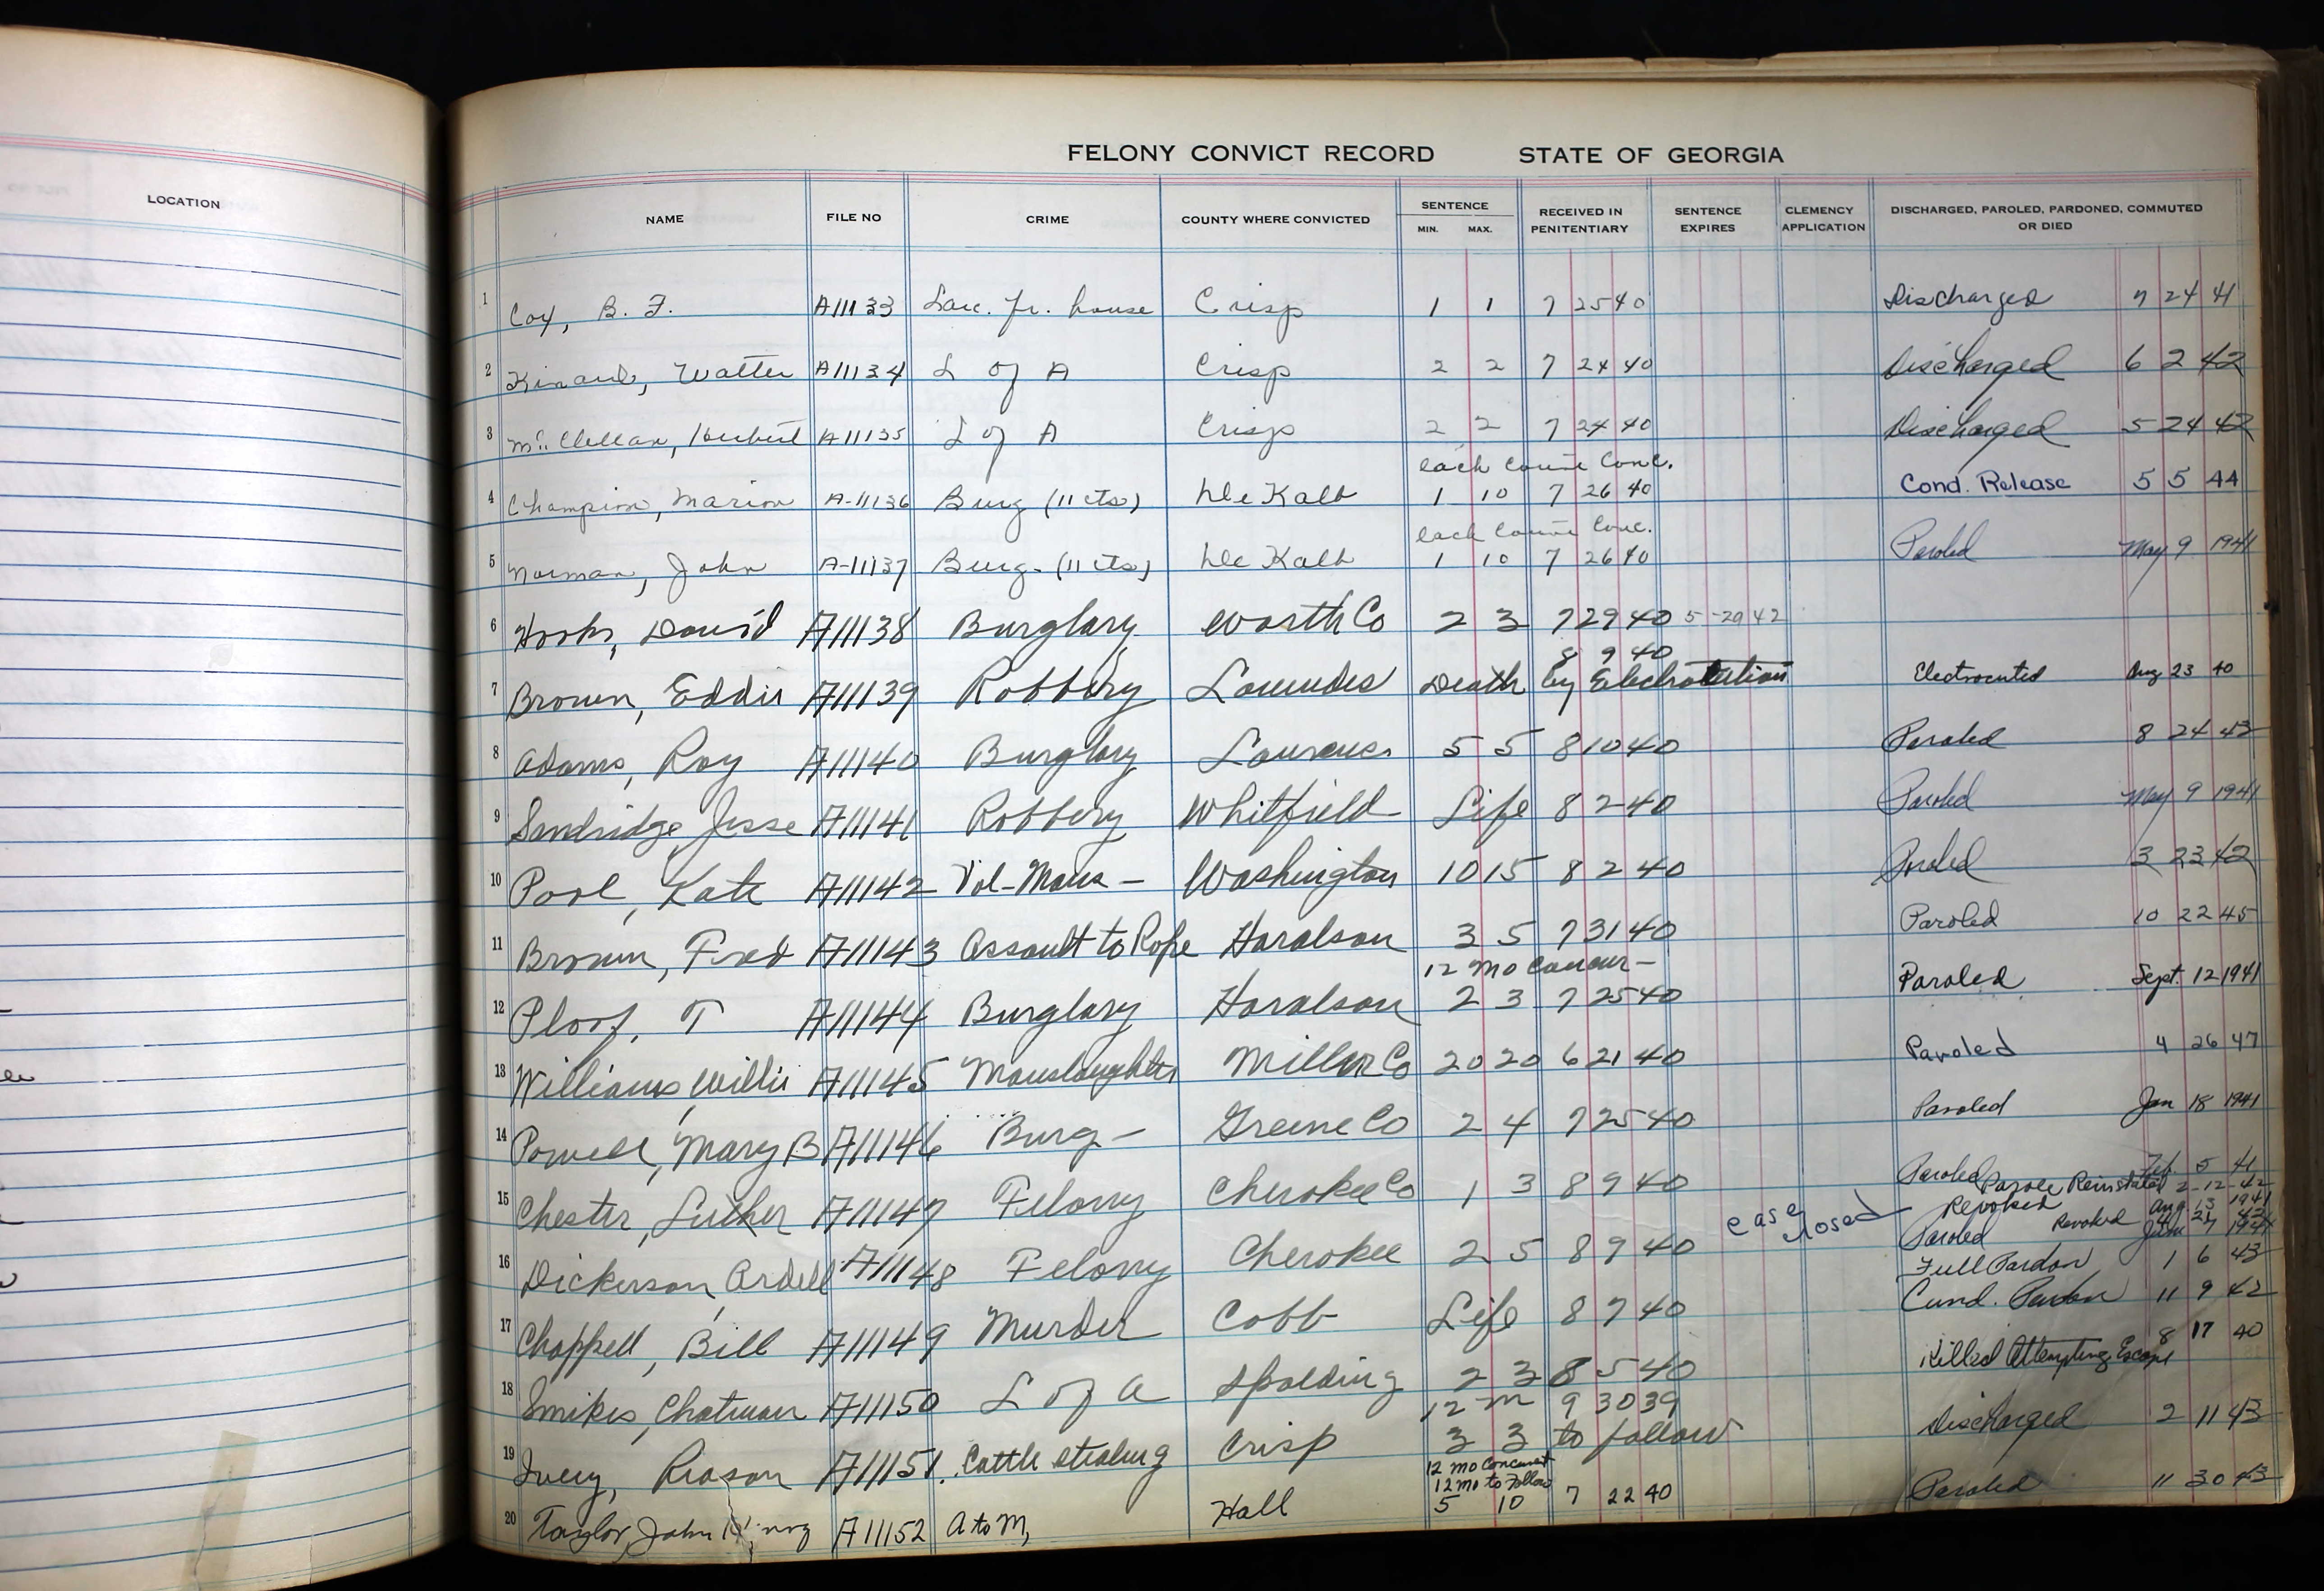 LOCATION
FELONY CONVICT RECORD STATE OF GEORGIA
NAME FILE NO CRIME COUNTY WHERE CONVICTED SENTENCE MIN. MAX. RECEIVED IN PENITENTIARY SENTENCE EXPIRES CLEMENCY APPLICATION DISCHARGED, PAROLED, PARDONED, COMMUTED OR DIED
1 Cox, B. F. A11133 Larc. fr. house Crisp 1 1 7 25 40 Discharged 7 24 41
2 Kinard, Walter A11134 L of A Crisp 2 2 7 24 40 Discharged 6 2 42
3 McClellan, Herbert A11135 L of A Crisp 2 2 7 24 40 Discharged 5 24 42
each count Conc.
4 Champion, Marion A-11136 Burg (11 cts) De Kalb 1 10 7 26 40 Cond. Release 5 5 44
each count Conc.
5 Norman, John A-11137 Burg. (11 cts) De Kalb 1 10 7 26 40 Paroled May 9 1941
6 Hooks, David A11138 Burglary Worth Co 2 3 7 29 40 5-29 42
8 9 40
7 Brown, Eddie A11139 Robbery Lowndes Death by Electrocution Electrocuted Aug 23 40
8 Adams, Roy A11140 Burglary Laurens 5 5 8 10 40 Paroled 8 24 42
9 Sandridge, Jesse A11141 Robbery Whitfield Life 8 2 40 Paroled May 9 1941
10 Pool, Kate A11142 Vol-Mans - Washington 10 15 8 2 40 Paroled 3 23 42
11 Brown, Fred A11143 Assault to Rape Haralson 3 5 7 31 40 Paroled 10 22 45
12 mo concur-
12 Ploof, T A11144 Burglary Haralson 2 3 7 25 40 Paroled Sept. 12 1941
13 Williams, Willie A11145 Manslaughter Miller Co 20 20 6 21 40 Paroled 4 26 47
14 Powell, Mary B A11146 Burg- Greene Co 2 4 7 25 40 Paroled Jan 18 1941
15 Chester, Luther A11147 Felony Cherokee Co 1 3 8 9 40 Paroled Feb 5 41
Parole Reinstated 2-12-42
case closed Revoked Aug. 13 1941
16 Dickerson, Ardell A11148 Felony Cherokee 2 5 8 9 40 Paroled Revoked
Full Pardon 1 6 43
17 Chappell, Bill A11149 Murder Cobb Life 8 7 40 Cond. Pardon 11 9 42
18 Smikes, Chatman A11150 L of A Spalding 2 3 8 5 40 Killed Attempting Escape 8 17 40
12 m 9 30 39
19 Ivey, Reason A11151. Cattle stealing Crisp 3 3 to follow Discharged 2 11 43
12 mo Concurrent
12 mo to Follow
20 Taylor, John A11152 A to M, Hall 5 10 7 22 40 Paroled 11 30 43